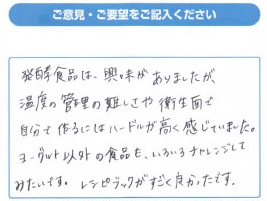 ご意見・ご要望をご記入ください
発酵食品は、興味がありましたが、
温度の管理の難しさや衛生面で
自分で作るにはハードルが高く感じていました。
ヨーグルト以外の食品も、いろいろチャレンジして
みたいです。レシピブックがすごく良かったです。